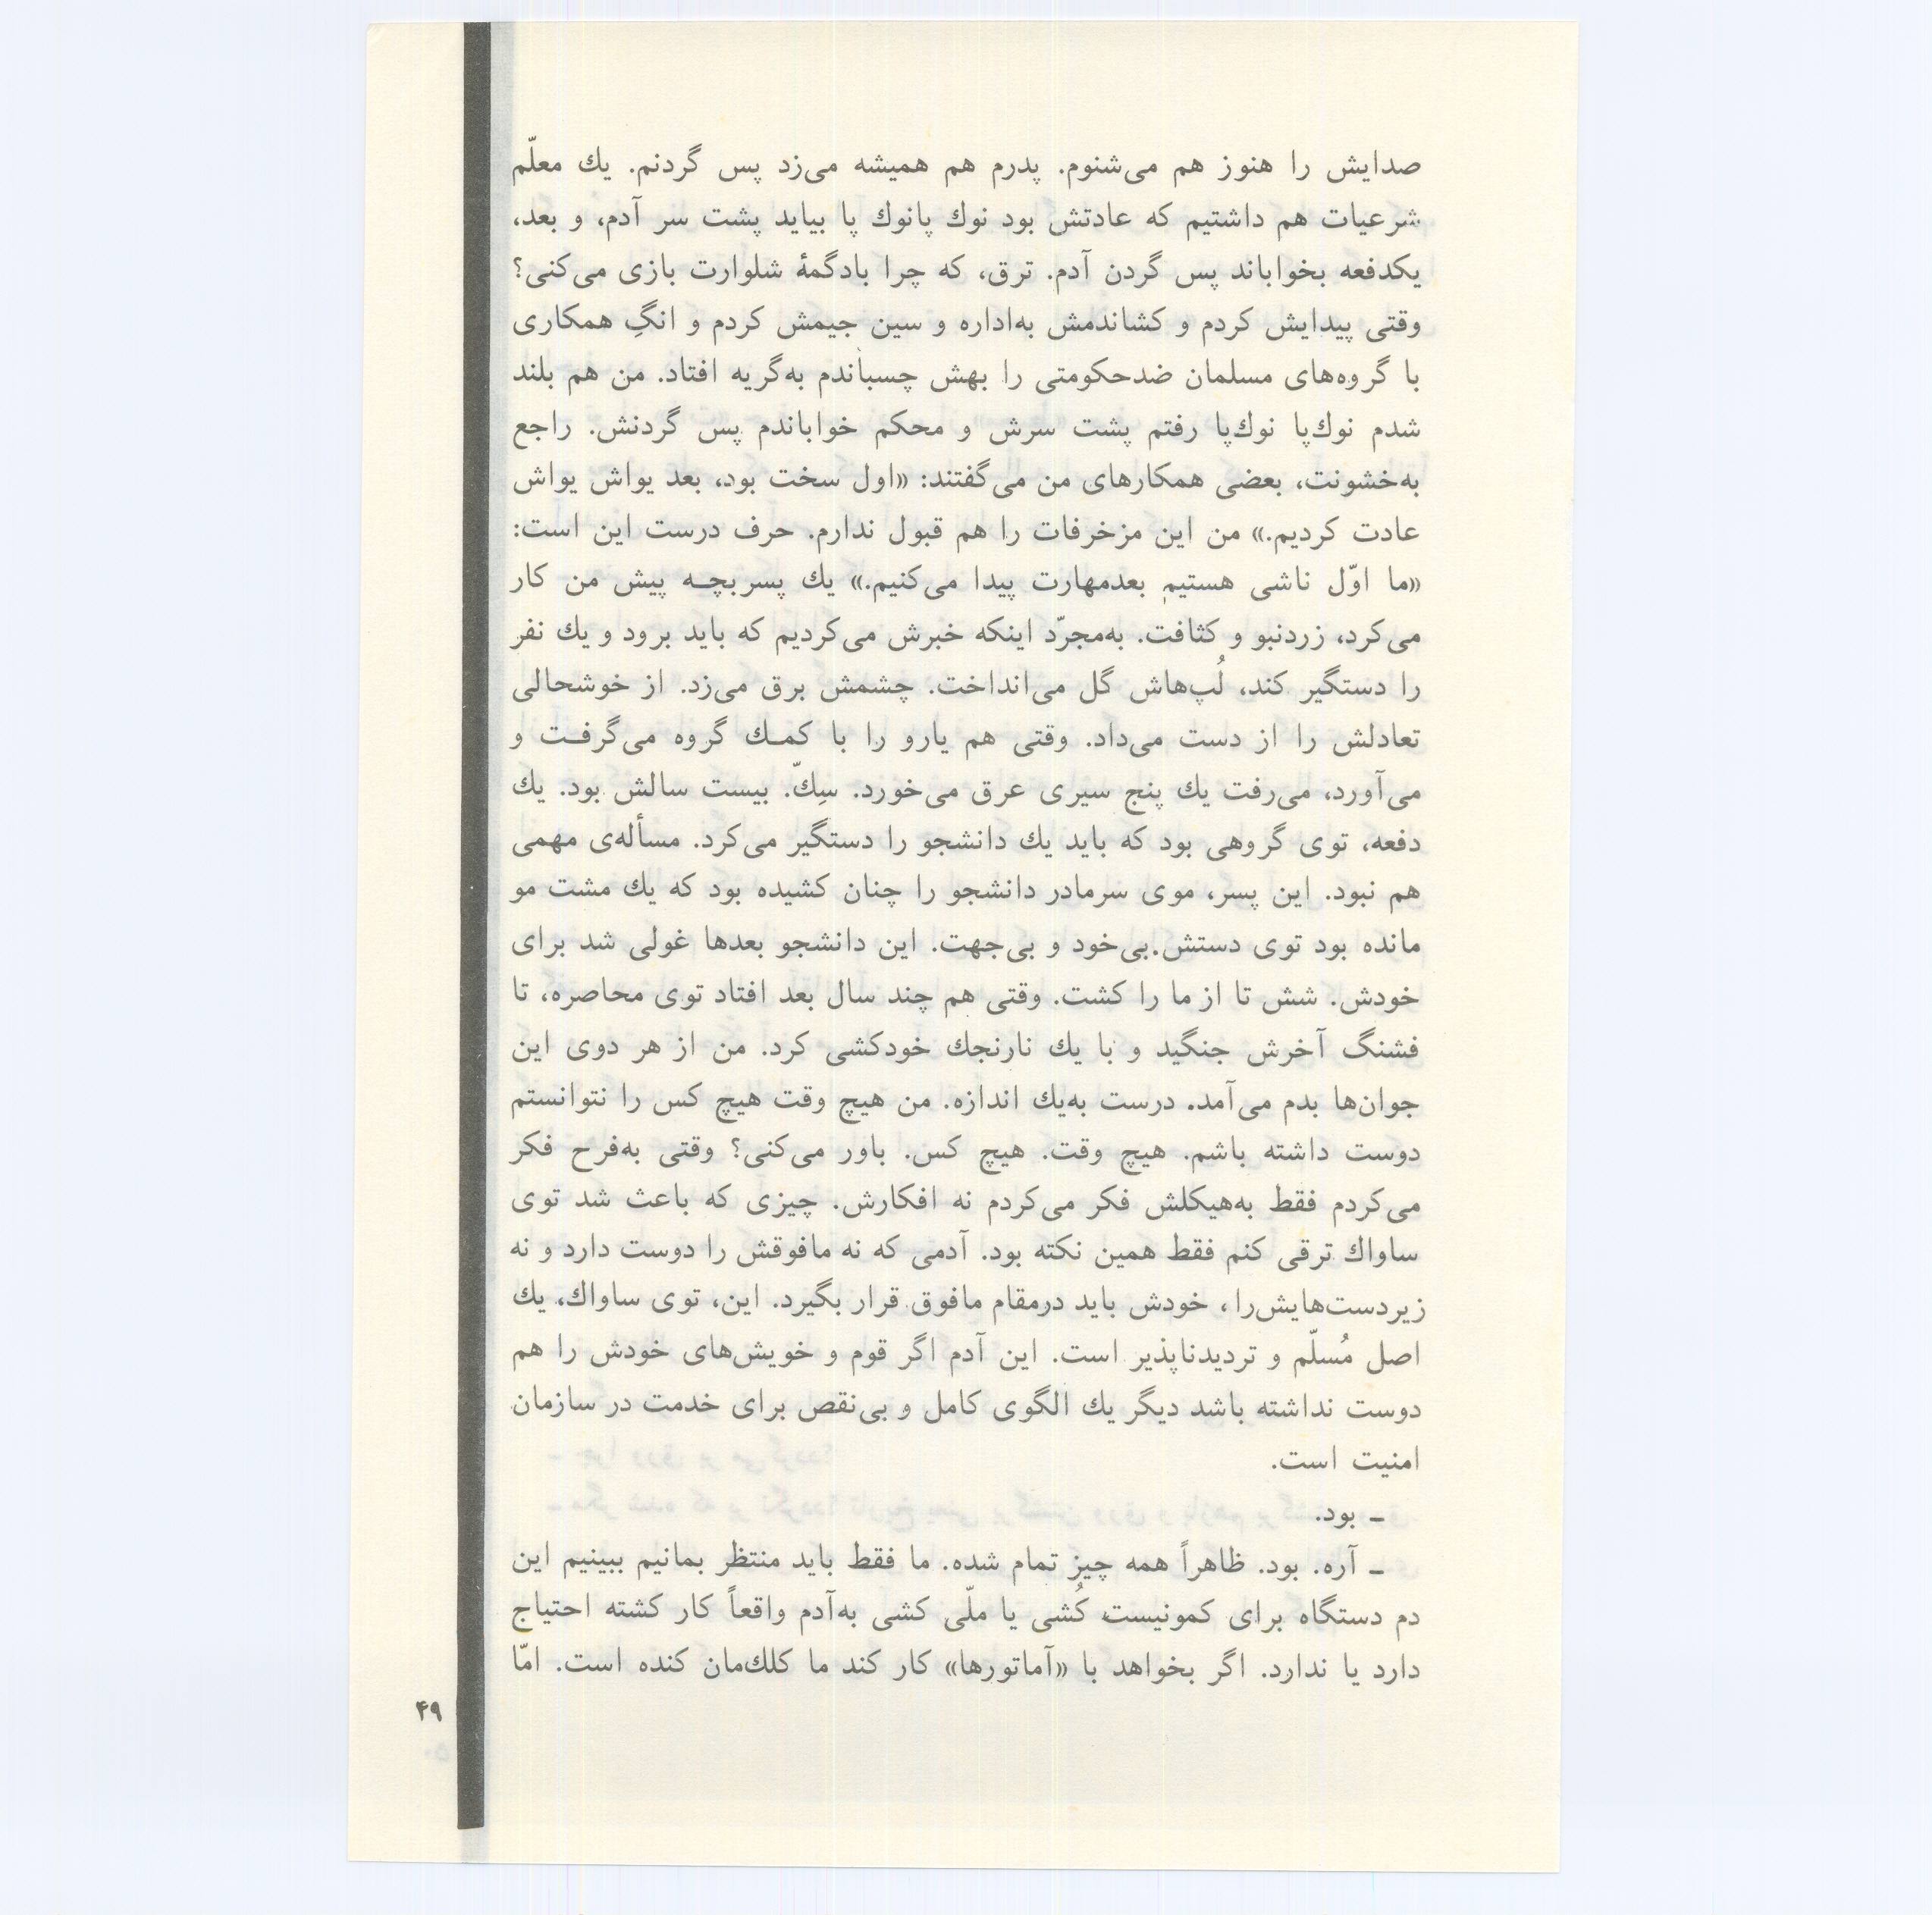 صدایش را هنوز هم می‌شنوم. پدرم هم همیشه می‌زد پس گردنم. یك معلّم
شرعیات هم داشتیم که عادتش بود نوك پانوك پا بیاید پشت سر آدم، و بعد،
یکدفعه بخواباند پس گردن آدم. ترق، که چرا بادگمهٔ شلوارت بازی می‌کنی؟
وقتی پیدایش کردم و کشاندمش به‌اداره و سین جیمش کردم و انگِ همکاری
با گروه‌های مسلمان ضدحکومتی را بهش چسباندم به‌گریه افتاد. من هم بلند
شدم نوك‌پا نوك‌پا رفتم پشت سرش و محکم خواباندم پس گردنش. راجع
به‌خشونت، بعضی همکارهای من می‌گفتند: «اول سخت بود، بعد یواش یواش
عادت کردیم.» من این مزخرفات را هم قبول ندارم. حرف درست این است:
«ما اوّل ناشی هستیم بعدمهارت پیدا می‌کنیم.» یك پسربچـه پیش من کار
می‌کرد، زردنبو و کثافت. به‌مجرّد اینکه خبرش می‌کردیم که باید برود و یك نفر
را دستگیر کند، لُپ‌هاش گل می‌انداخت. چشمش برق می‌زد. از خوشحالی
تعادلش را از دست می‌داد. وقتی هم یارو را با کمـك گروه می‌گرفـت و
می‌آورد، می‌رفت یك پنج سیری عرق می‌خورد. سِكّ. بیست سالش بود. یك
دفعه، توی گروهی بود که باید یك دانشجو را دستگیر می‌کرد. مسأله‌ی مهمی
هم نبود. این پسر، موی سرمادر دانشجو را چنان کشیده بود که یك مشت مو
مانده بود توی دستش.بی‌خود و بی‌جهت. این دانشجو بعدها غولی شد برای
خودش. شش تا از ما را کشت. وقتی هم چند سال بعد افتاد توی محاصره، تا
فشنگ آخرش جنگید و با یك نارنجك خودکشی کرد. من از هر دوی این
جوان‌ها بدم می‌آمد. درست به‌یك اندازه. من هیچ وقت هیچ کس را نتوانستم
دوست داشته باشم. هیچ وقت. هیچ کس. باور می‌کنی؟ وقتی به‌فرح فکر
می‌کردم فقط به‌هیکلش فکر می‌کردم نه افکارش. چیزی که باعث شد توی
ساواك ترقی کنم فقط همین نکته بود. آدمی که نه مافوقش را دوست دارد و نه
زیردست‌هایش‌را، خودش باید درمقام مافوق قرار بگیرد. این، توی ساواك، یك
اصل مُسلّم و تردیدناپذیر است. این آدم اگر قوم و خویش‌های خودش را هم
دوست نداشته باشد دیگر یك الگوی کامل و بی‌نقص برای خدمت در سازمان
امنیت است.
ـ بود.
ـ آره. بود. ظاهراً همه چیز تمام شده. ما فقط باید منتظر بمانیم ببینیم این
دم دستگاه برای کمونیست کُشی یا ملّی کشی به‌آدم واقعاً کار کشته احتیاج
دارد یا ندارد. اگر بخواهد با «آماتورها» کار کند ما کلك‌مان کنده است. امّا
۴۹